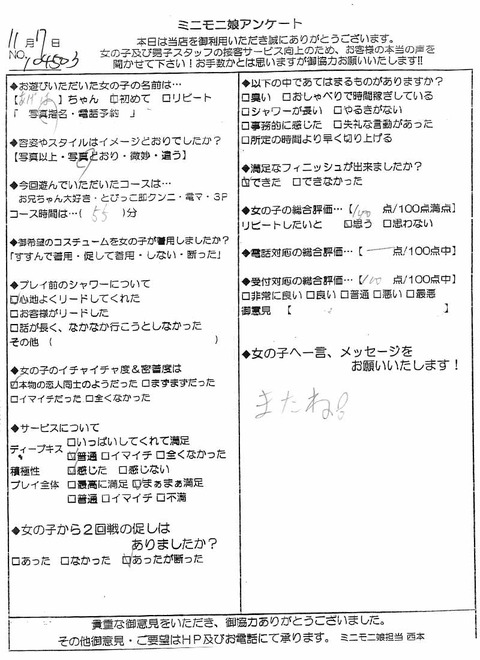 ミニモニ娘アンケート
11月17日
NO. 104503
本日は当店を御利用いただき誠にありがとうございます。
女の子及び男子スタッフの接客サービス向上のため、お客様の本当の声を
聞かせて下さい!お手数かとは思いますが御協力お願いいたします!!
◆お遊びいただいた女の子の名前は…
【 】ちゃん □初めて □リピート
「 写真指名・電話予約 」
◆容姿やスタイルはイメージとおりでしたか?
【写真以上・写真とおり・微妙・違う】
◆今回遊んでいただいたコースは…
お兄ちゃん大好き・とびっこ即クンニ・電マ・3P
コース時間は…( 55 )分
◆御希望のコスチュームを女の子が着用しましたか?
「すすんで着用・促して着用・しない・断った」
◆プレイ前のシャワーについて
□心地よくリードしてくれた
□お客様がリードした
□話が長く、なかなか行こうとしなかった
その他( )
◆女の子のイチャイチャ度&密着度は
□本物の恋人同士のようだった □まずまずだった
□イマイチだった □全くなかった
◆サービスについて
ディープキス □いっぱいしてくれて満足
□普通 □イマイチ □全くなかった
積極性 □感じた □感じない
プレイ全体 □最高に満足 □まぁまぁ満足
□普通 □イマイチ □不満
◆女の子から2回戦の促しは
ありましたか?
□あった □なかった □あったが断った
◆以下の中であてはまるものがありますか?
□臭い □おしゃべりで時間稼ぎしている
□シャワーが長い □やるきがない
□事務的に感じた □失礼な言動があった
□所定の時間より早く切り上げる
◆満足なフィニッシュが出来ましたか?
□できた □できなかった
◆女の子の総合評価…【100 点/100点満点】
リピートしたいと □思う □思わない
◆電話対応の総合評価…【― 点/100点中】
◆受付対応の総合評価…【100 点/100点中】
□非常に良い □良い □普通 □悪い □最悪
御意見 【 】
◆女の子へ一言、メッセージを
お願いいたします!
またね!
貴重な御意見をいただき、御協力ありがとうございました。
その他御意見・ご要望はHP及びお電話にて承ります。 ミニモニ娘担当 西本